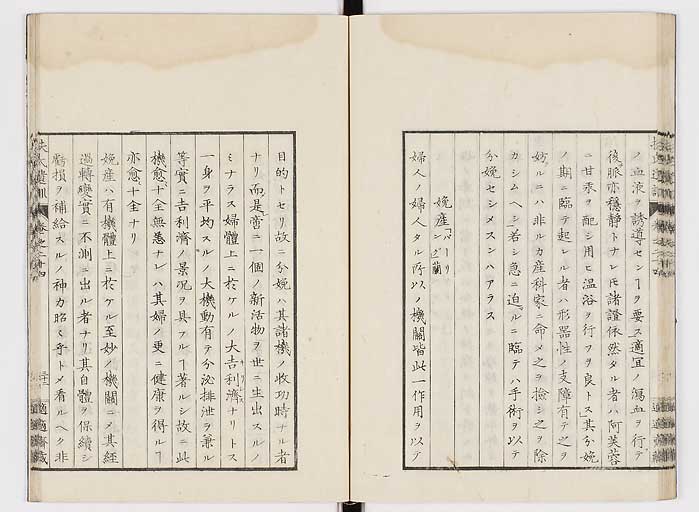 ノ血液ヲ誘導センヿヲ要ス適宜ノ瀉血ヲ行テ
後脈亦穏静トナレ𪜈諸證依然タル者ハ阿芙蓉
ニ甘汞ヲ配シ用ヒ温浴ヲ行フヲ良トス其分娩
ノ期ニ臨テ起レル者ハ形器性ノ支障有テ之ヲ
妨ルニハ非ルカ産科家ニ命メ之ヲ撿シ之ヲ除
カシムヘシ若シ急ニ迫ルニ臨テハ手術ヲ以テ
分娩セシメスンハアラス
娩産
婦人ノ婦人タル所以ノ機關皆此一作用ヲ以テ
目的トセリ故ニ分娩ハ其諸機ノ收功時ナル者
ナリ而是啻ニ一個ノ新活物ヲ世ニ生出スルノ
ミナラス婦體上ニ於ケルノ大吉利濟ナリトス
一身ヲ平均スルノ大機動有テ分泌排泄ヲ兼ル
等實ニ吉利濟ノ景況ヲ具フルヿ著ルシ故ニ此
機愈十全無恙ナレハ其婦ノ更ニ健康ヲ得ルヿ
亦愈十全ナリ
娩産ハ有機體上ニ於ケル至妙ノ機關ニメ其經
過轉變實ニ不測ニ出ル者ナリ其自體ヲ保續シ
虧損ヲ補給スルノ神力昭々乎トメ看ルヘク非
扶氏遺訓 卷之二十四
適適齋藏